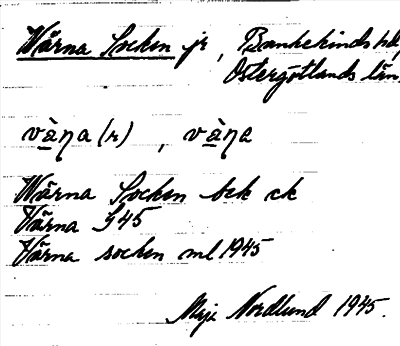 Wärna Socken jr, Bankekinds hd,
Östergötlands län.
vàṇa (r), vàṇa
Wärna Socken bek ck
Värna G45
Värna socken ml 1945
Maje Nordlund 1945.